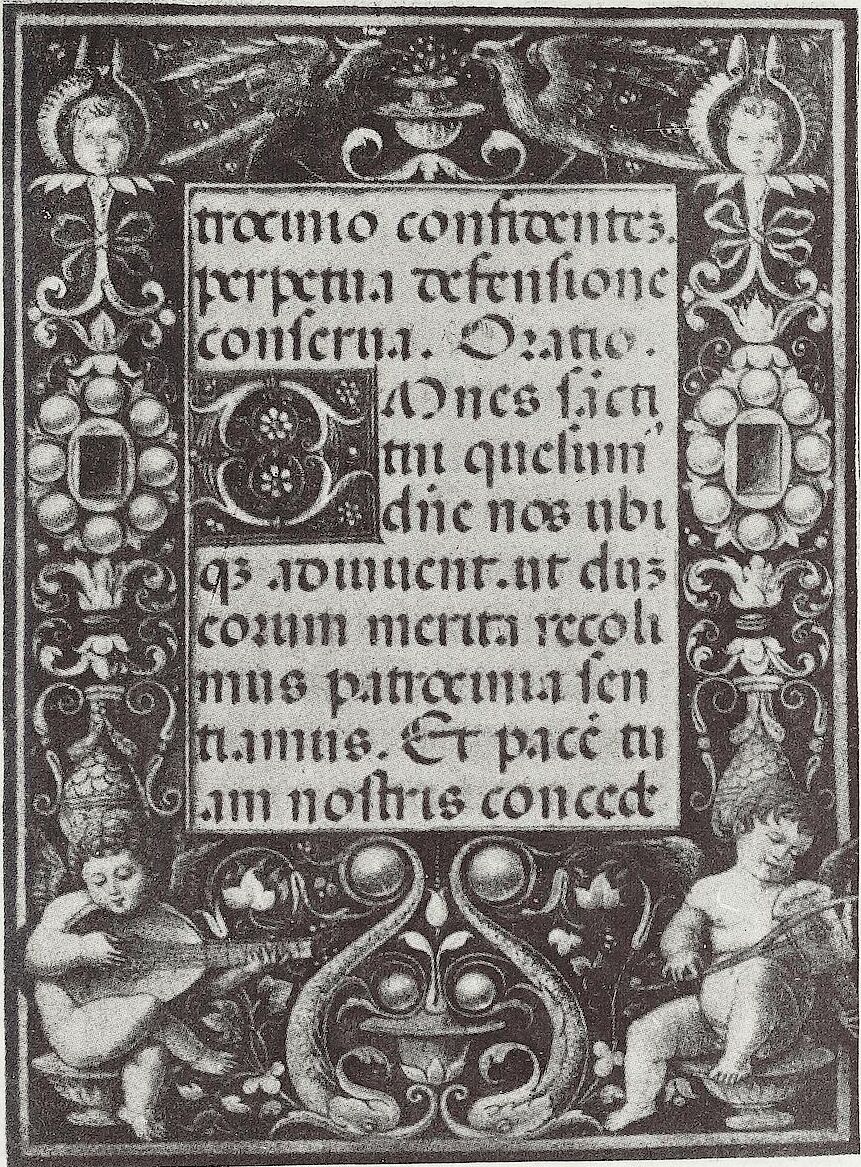 trocinio confidentes.
perpetua defensione
conserua. Oratio.
OMnes sācti
tui quesum'
dñe nos ubi
qꝫ adiuuent. ut duꝫ
eorum merita recoli
mus patrocinia sen
tiamus. Et pacē tu
am nostris concede